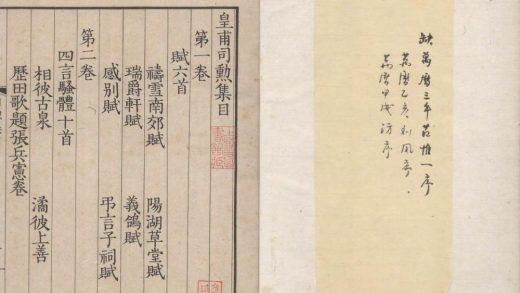 缺萬曆三年惟一序
萬曆乙亥刘凤序
萬曆甲戌汸序
皇甫司勳集目
第一卷
賦六首
禱雪南郊賦 陽湖草堂賦
瑞爵軒賦 義鴿賦
感别賦 弔言子祠賦
第二卷
四言騷體十首
相彼古泉 潏彼上善
歷田歌題張兵憲卷